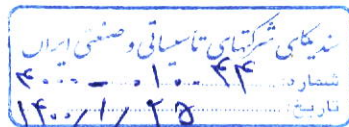 سندیکای شرکتهای تأسیساتی و صنعتی ایران
شماره: ۴۰۰۰ - ۰۱۰۰۴۴
تاریخ: ۱۴۰۰/۱/۲۵